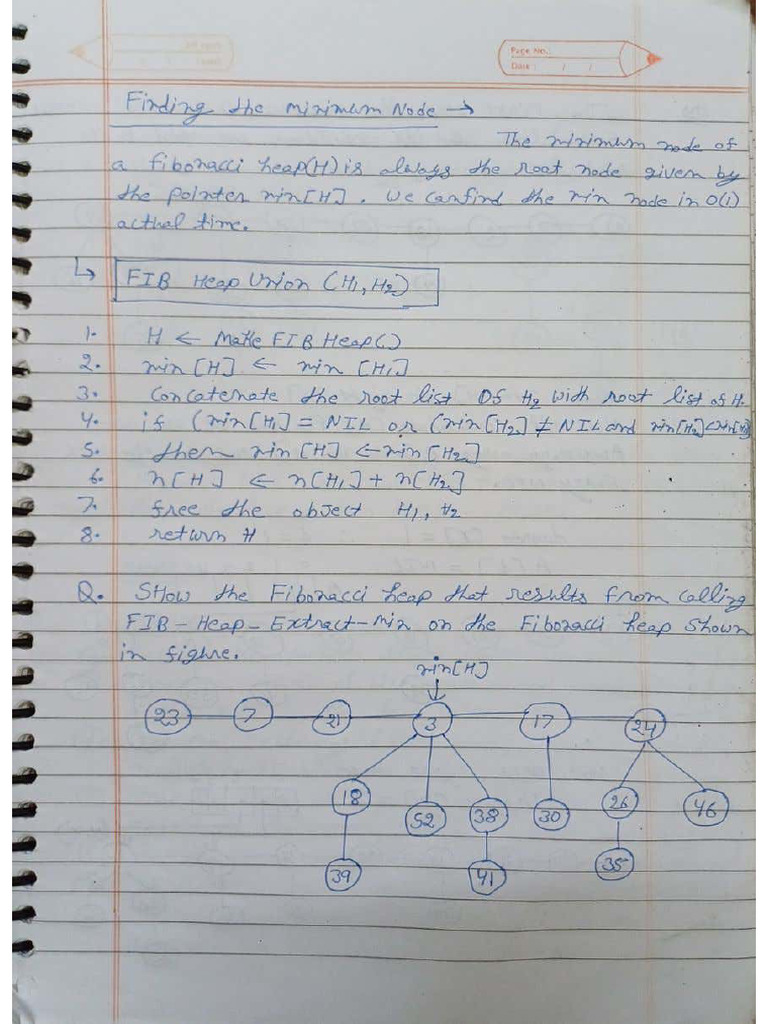 Page No.:
Date: / /
Finding the minimum Node →
The minimum node of
a fibonacci heap(H) is always the root node given by
the pointer min[H]. We can find the min node in O(1)
actual time.
↳ FIB Heap Union (H1, H2)
1. H ← Make FIB Heap()
2. min[H] ← min [H1]
3. Concatenate the root list of H2 with root list of H.
4. if (min[H1] = NIL or (min[H2] ≠ NIL and min[H2]<min[H1]
5. then min[H] ← min[H2]
6. n[H] ← n[H1] + n[H2]
7. free the object H1, H2
8. return H
Q. Show the Fibonacci heap that results from calling
FIB-Heap-Extract-min on the Fibonacci heap shown
in figure.
min[H]
23 7 21 3 17 24
18 52 38 30 26 46
39 41 35